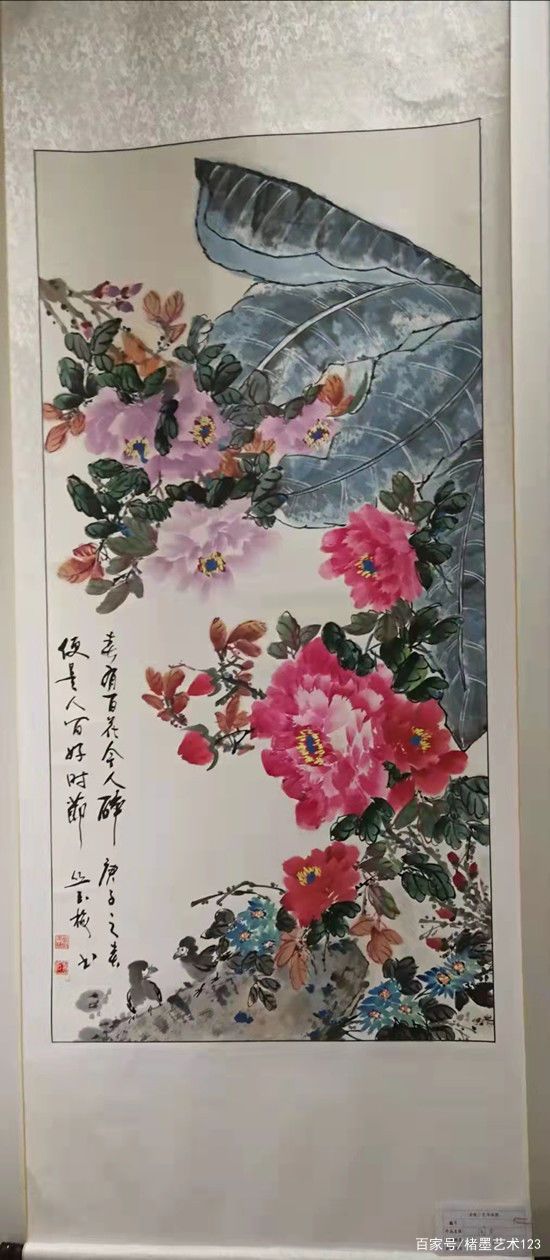 春有百花令人醉 庚子之春
便是人间好时節 丛玉梅
百家号/楮墨艺术123